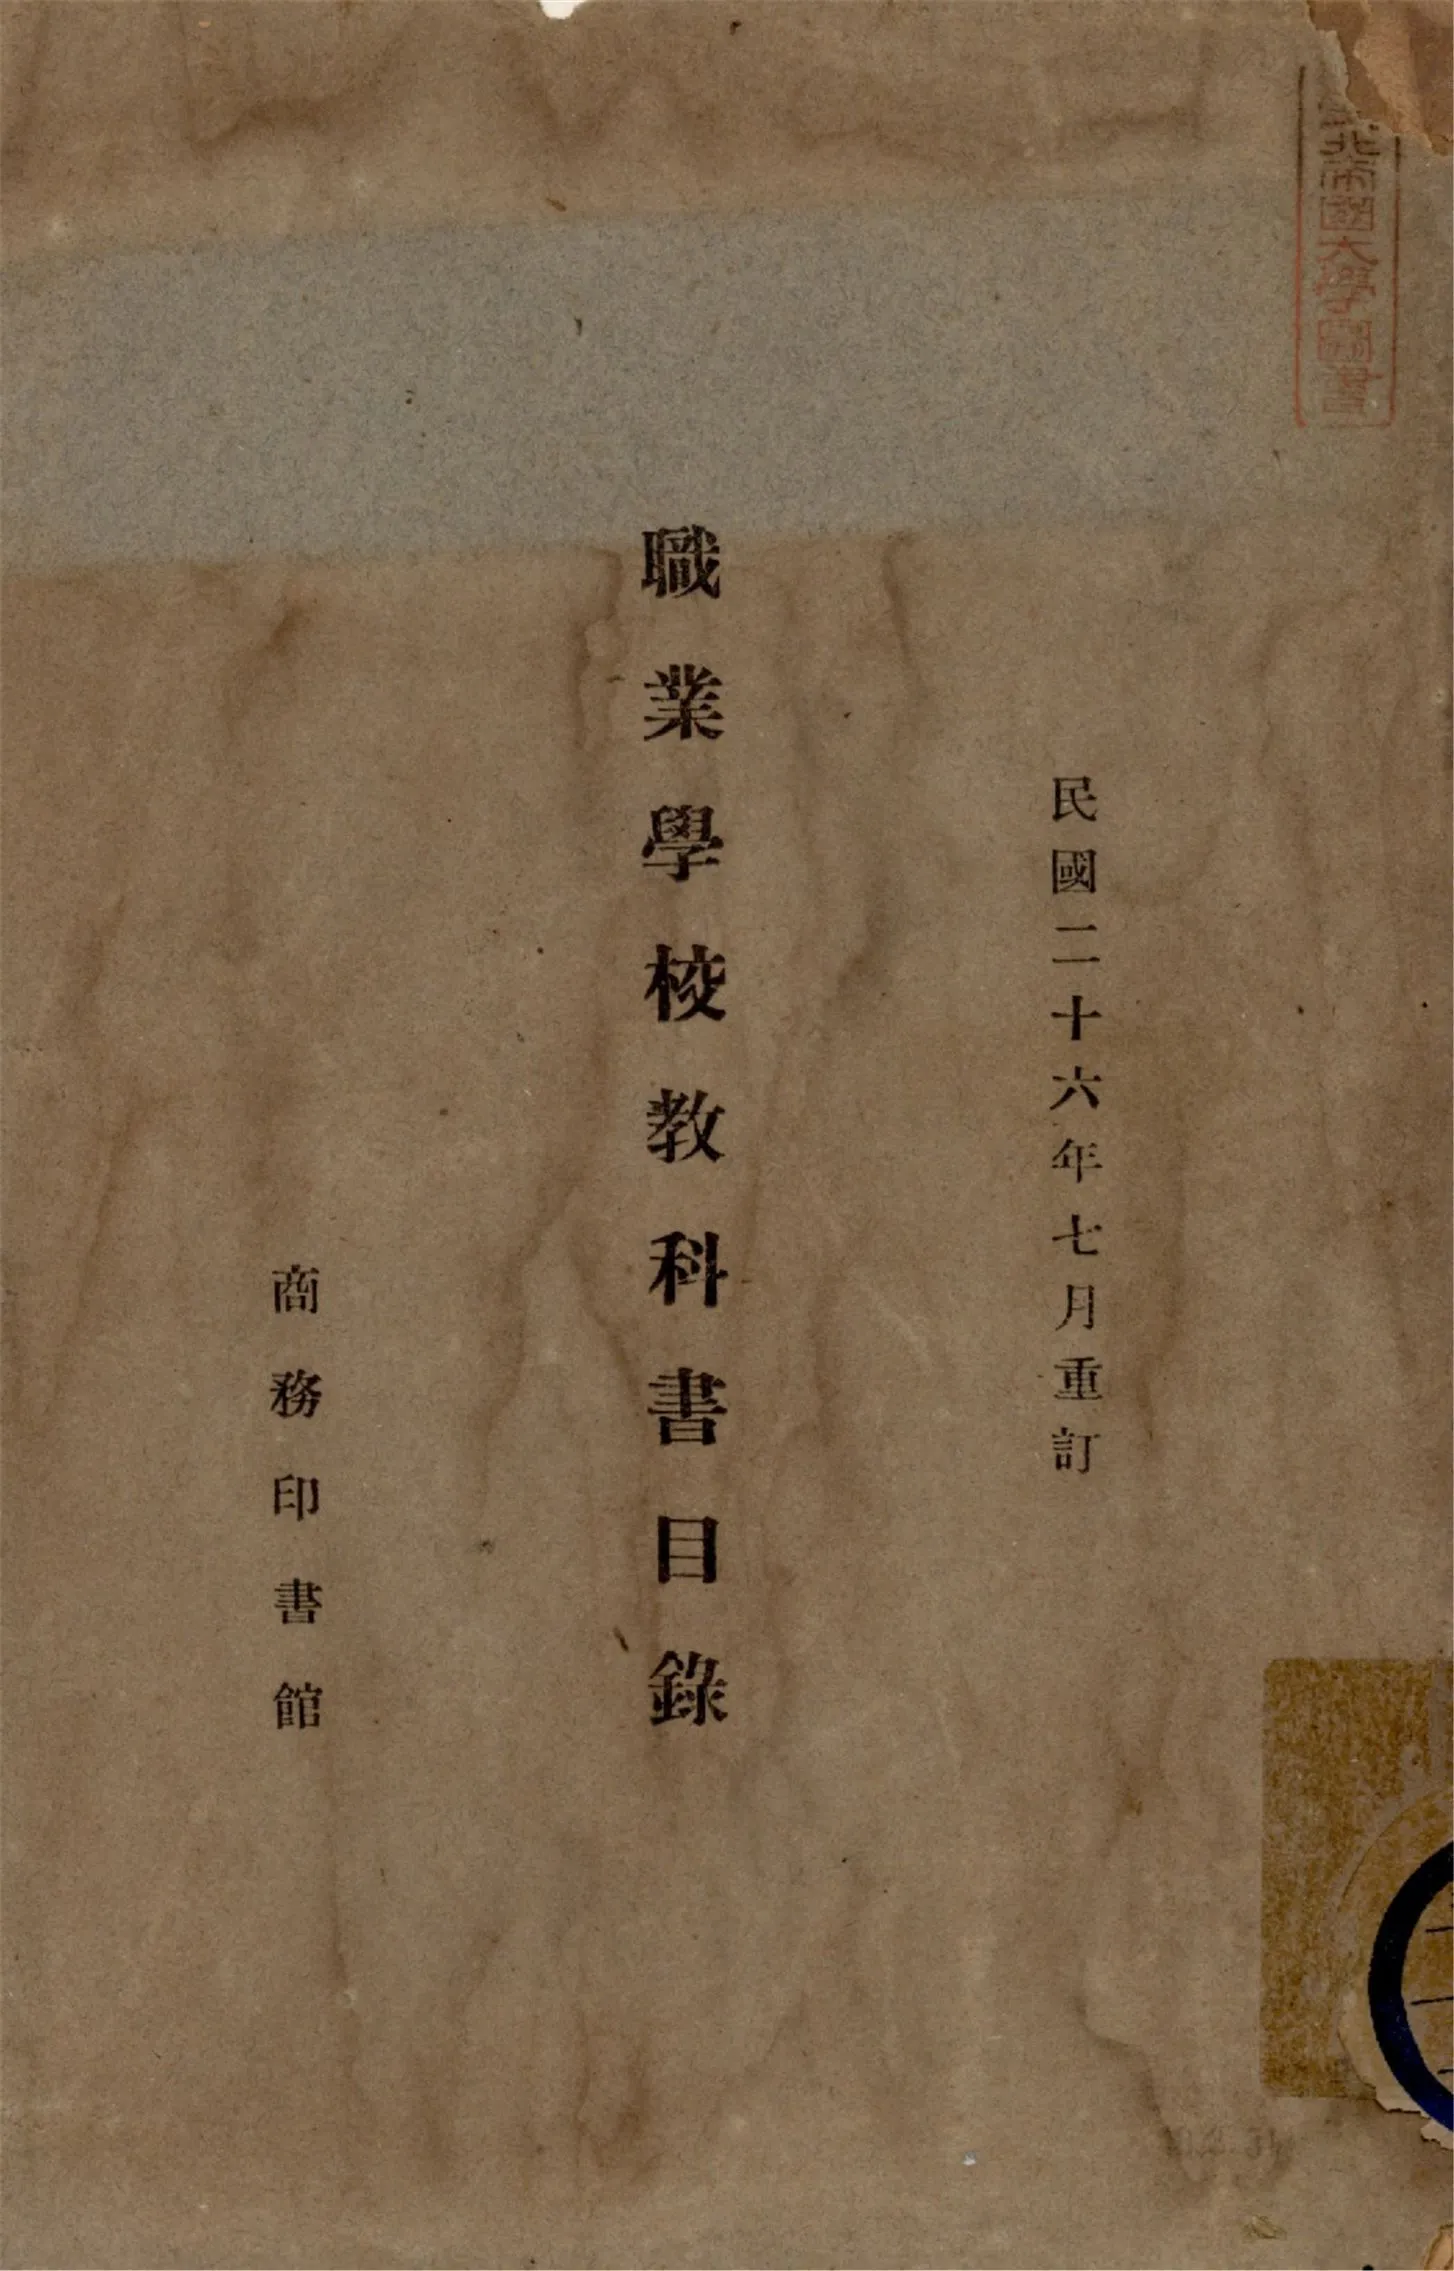 北帝國大學圖書
民國二十六年七月重訂
職業學校教科書目錄
商務印書館